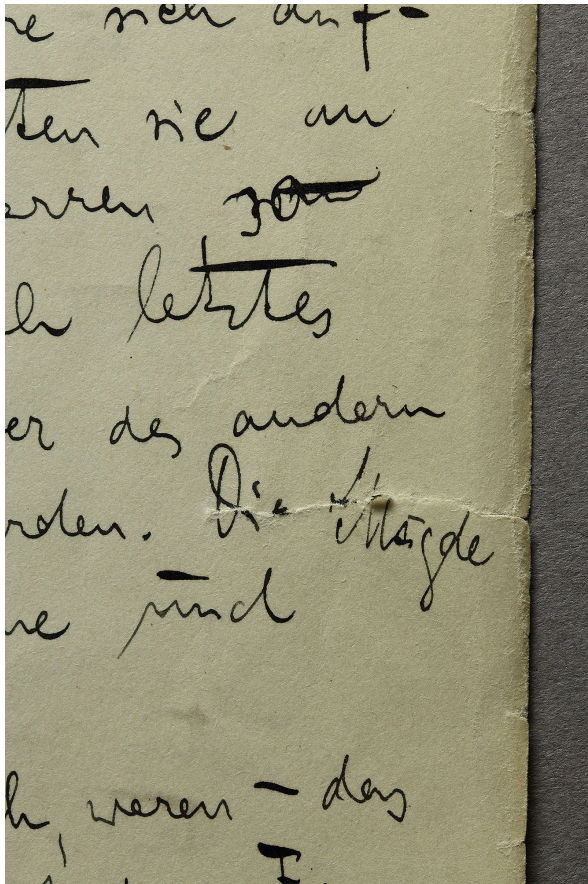 re sich auf-
ten sie an
arren
ch letztes
er des andern
rden. Die Mägde
ne und
h, waren – das